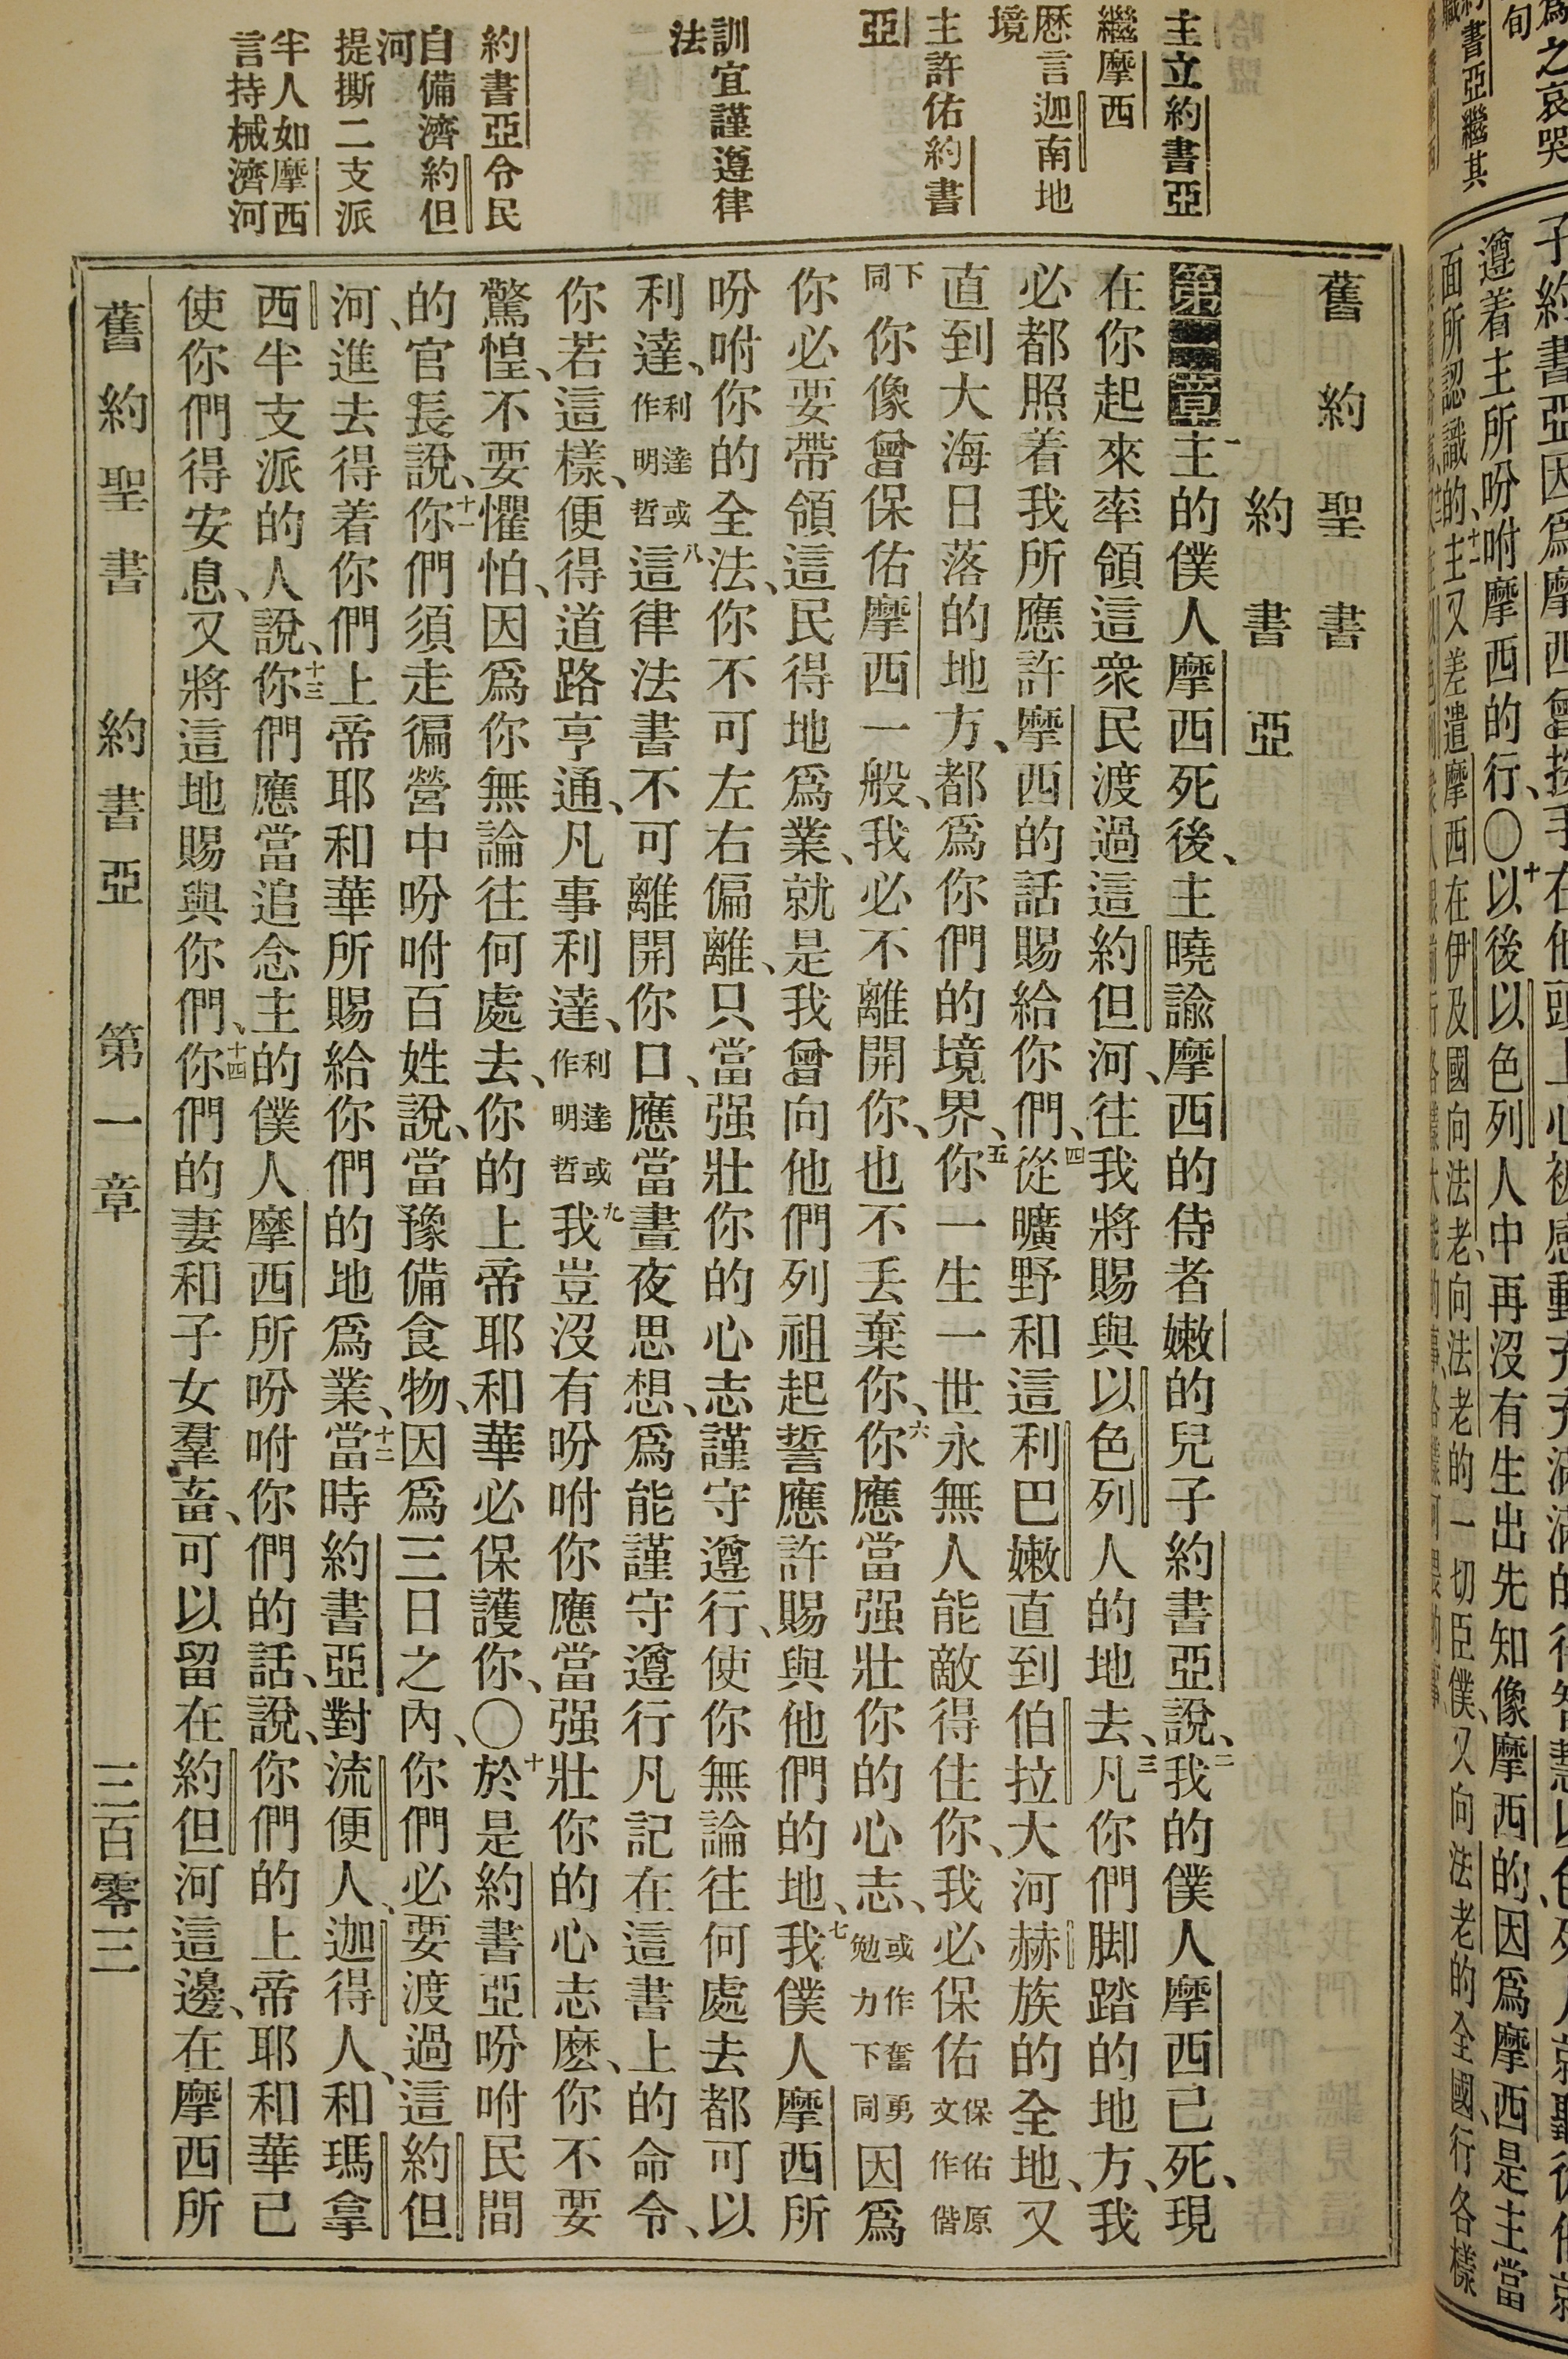 主立約書亞
繼摩西
歷言迦南地
境
主許佑約書
亞
訓宜謹遵律
法
約書亞令民
自備濟約但
河
提撕二支派
半人如摩西
言持械濟河
舊約聖書
約書亞
第一章一主的僕人摩西死後、主曉諭摩西的侍者嫩的兒子約書亞說、二我的僕人摩西已死、現
在你起來率領這衆民渡過這約但河、往我將賜與以色列人的地去、三凡你們脚踏的地方、我
必都照着我所應許摩西的話賜給你們、四從曠野和這利巴嫩直到伯拉大河赫族的全地、又
直到大海日落的地方、都爲你們的境界、五你一生一世永無人能敵得住你、我必保佑保佑原文作偕
下同你像曾保佑摩西一般、我必不離開你、也不丢棄你、六你應當强壯你的心志、或作奮勇勉力下同因爲
你必要帶領這民得地爲業、就是我曾向他們列祖起誓應許賜與他們的地、七我僕人摩西所
吩咐你的全法、你不可左右偏離、只當强壯你的心志謹守遵行、使你無論往何處去都可以
利達、利達或作明哲八這律法書不可離開你口、應當晝夜思想、爲能謹守遵行凡記在這書上的命令、
你若這樣、便得道路亨通、凡事利達、利達或作明哲九我豈沒有吩咐你應當强壯你的心志麽、你不要
驚惶、不要懼怕、因爲你無論往何處去、你的上帝耶和華必保護你、〇十於是約書亞吩咐民間
的官長說、十一你們須走徧營中吩咐百姓說、當豫備食物、因爲三日之內、你們必要渡過這約但
河、進去得着你們上帝耶和華所賜給你們的地爲業、十二當時約書亞對流便人、迦得人、和瑪拿
西半支派的人說、十三你們應當追念主的僕人摩西所吩咐你們的話、說、你們的上帝耶和華已
使你們得安息、又將這地賜與你們、十四你們的妻和子女羣畜、可以留在約但河這邊、在摩西所
舊約聖書 約書亞 第一章 三百零三
爲之哀哭
約書亞繼其
子約書亞因爲摩西曾按手在他頭上心被感動
遵着主所吩咐摩西的行、〇十以後以色列人中再沒有生出先知像摩西的、因爲摩西是主當
面所認識的、十一主又差遣摩西在伊及國向法老、向法老的一切臣僕、又向法老的全國、行各樣